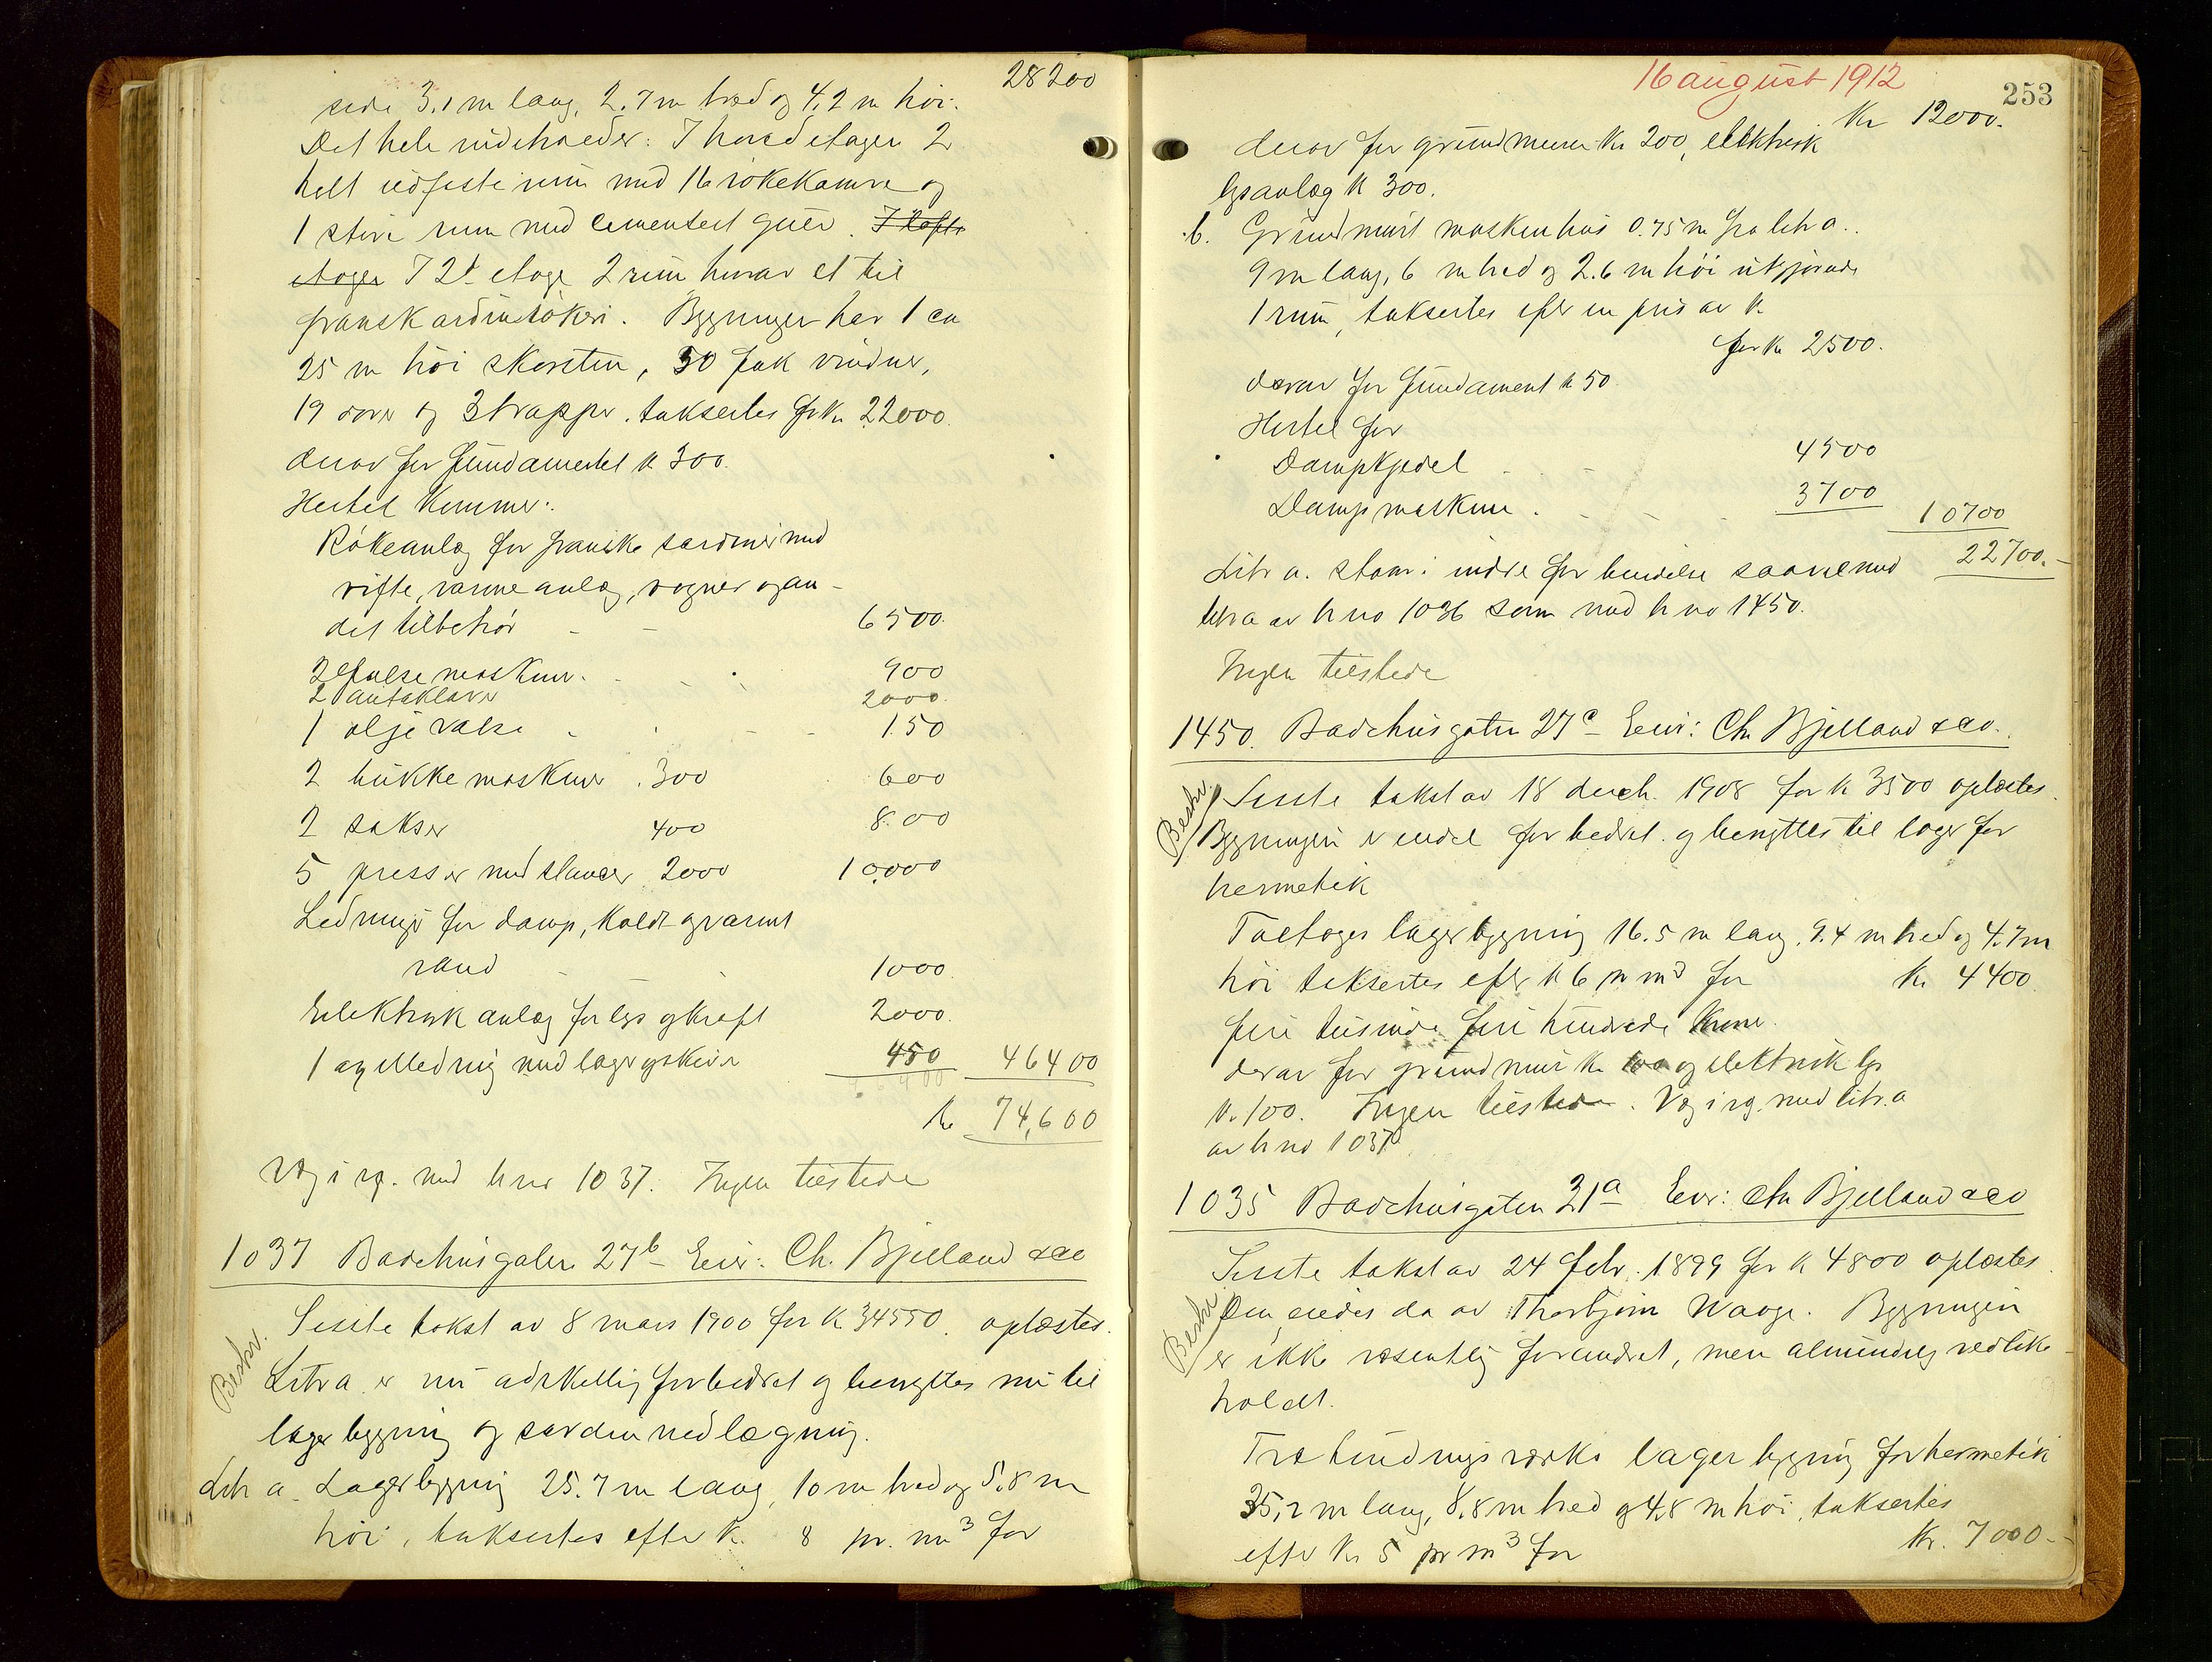 28200
side 3.1 m lang, 2.7 m bred og 4.2 m höi.
Det hele indeholder: I hovedetagen 2
helt ildfaste rum med 16 rökekamre og
1 större rum med cementert gulv. I lofts
etagen I 2d etage 2 rum hvorav et til
fransk ardinrökeri. Bygningen har 1 ca
25 m höi skorsten, 30 fak vinduer,
19 dorer og 3 trapper. taksertes for Kr. 22000.
derav for fundamentet k 300.
Hertil kommer:
Rökeanlæg for franske sardiner med
vifte, varmeanlæg, vogner og an-
det tilbehör - - 6500.
3 false maskiner. - - 900
2 autoklaver 2000.
1 olje valse - - 150
2 bukke maskiner . 300 600
2 sakser 400 8.00
5 presser med stanser 2000 10.000
Ledninger for damp, koldt og varmt
vand - 1000.
Elektrisk anlæg for lys og kraft 2000.
1 axelledning med lager og skiver 450 46400
Kr 74,600
Væg i væg. med hno 1037. Ingen tilstede
1037 Badehusgaten 27b Eier: Ch. Bjelland & Co
Beskr.
Sisste takst av 8 mars 1900 for K 34550. oplæstes.
Litr a er nu adskillig forbedret og benyttes nu til
lager bygning og sardin nedlægning.
Litr a. Lagerbygning 25.7 m lang, 10 m bred og 5.8 m
höi, taksertes efter K. 8 pr. m3 for
16 august 1912
253
Kr 12000.
derav for grundmuren Kr 200, elektrisk
lysanlæg K 300.
b. Grundmurt maskinhus 0.75 m fra litr a..
9 m lang, 6 m bred og 2.6 m höi utgjørende
1 rum, taksertes efter en pris av k
for Kr 2500.
derav for fundament k 50.
Hertil for
Dampkjedel - - 4500
Dampmaskine . - - 3700 10700
22700.-
Litr a. staar i indre forbindelse saavel med
litra av hno 1036 som med hno 1450.
Ingen tilstede
1450. Badehusgaten 27c Eier: Chr Bjelland & Co.
Beskr.
Sisste takst av 18 decb. 1908 for k 3500 oplæstes.
Bygningen er endel forbedret og benyttes til lager for
hermetik
Toetages lagerbygning 16.5 m lang, 9.4 m bred og 4.7 m
höi taksertes efter k 6 pr m3 for Kr 4400.
fire tusinde fire hundrede Kroner.
derav for grundmur k. 100 og elektrisk lys
k. 100. Ingen tilstede. Væg i væg. med litr. a
av hno 1037
1035 Badehusgaten 21a Eier: Chr Bjelland & Co
Beskr.
Sisste takst av 24 febr. 1899 for k 4800 oplæstes.
Den eiedes da av Thorbjörn Waage. Bygningen
er ikke væsentlig forandret, men almindelig vedlike-
holdt.
Træbindingsværks lager bygning for hermetik
35,2 m lang, 8,8 m bred og 4,8 m höi, taksertes
efter Kr 5 pr m3 for Kr. 7000.-